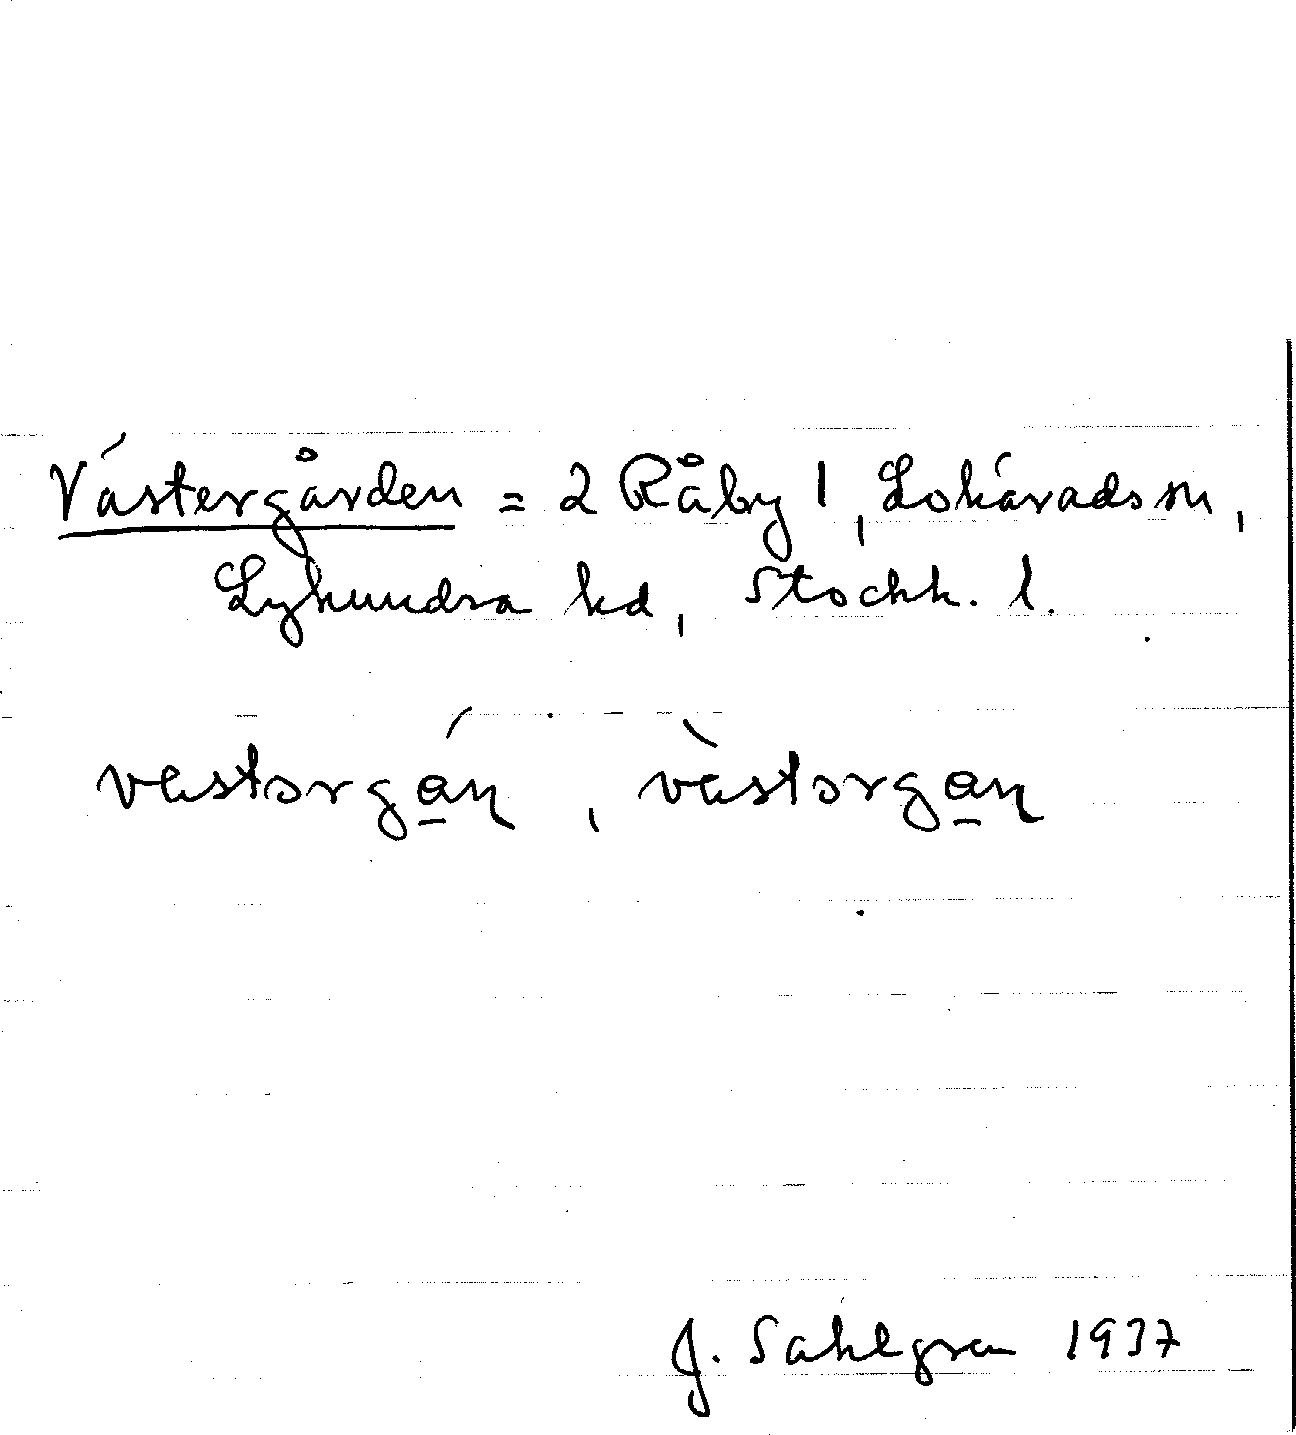 Västergården = 2 Råby 1, Lohärads sn,
Lyhundra hd, Stockh. l.
vastərgán, vàstərgan
J. Sahlgren 1937